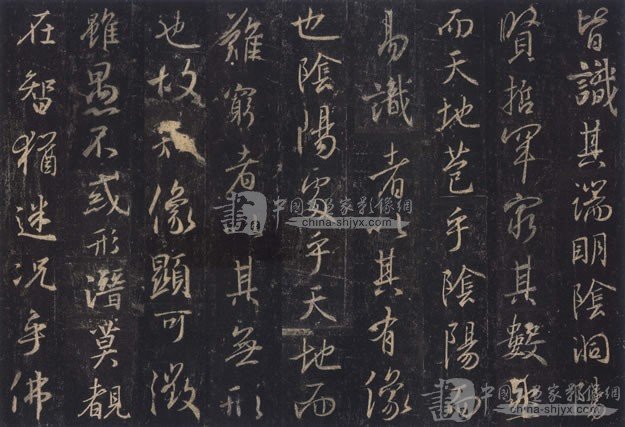 皆識其端明陰洞陽
賢哲罕窮其數然
而天地苞乎陰陽而
易識者以其有像
也陰陽處乎天地而
難窮者以其無形
也故知像顯可徵
雖愚不惑形潛莫覩
在智猶迷況乎佛
中國書畫家影像網
www.china-shjyx.com
中國書畫家影像網
www.china-shjyx.com